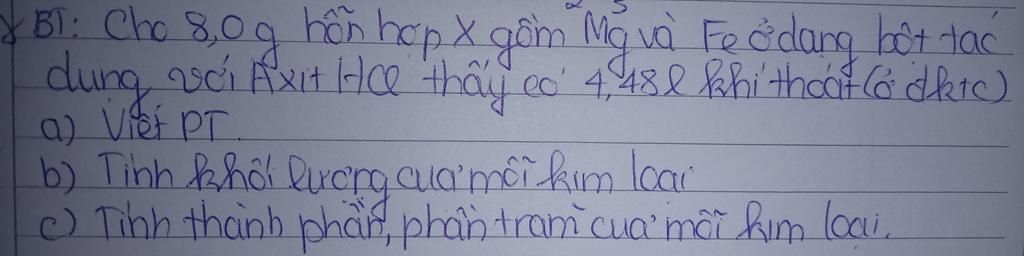 BT: Cho 8,0g hỗn hợp X gồm Mg và Fe ở dạng bột tác
dụng với Axit HCl thấy có 4,48l khí thoát (ở đktc)
a) Viết PT.
b) Tính khối lượng của mỗi kim loại
c) Tính thành phần, phần trăm của mỗi kim loại.